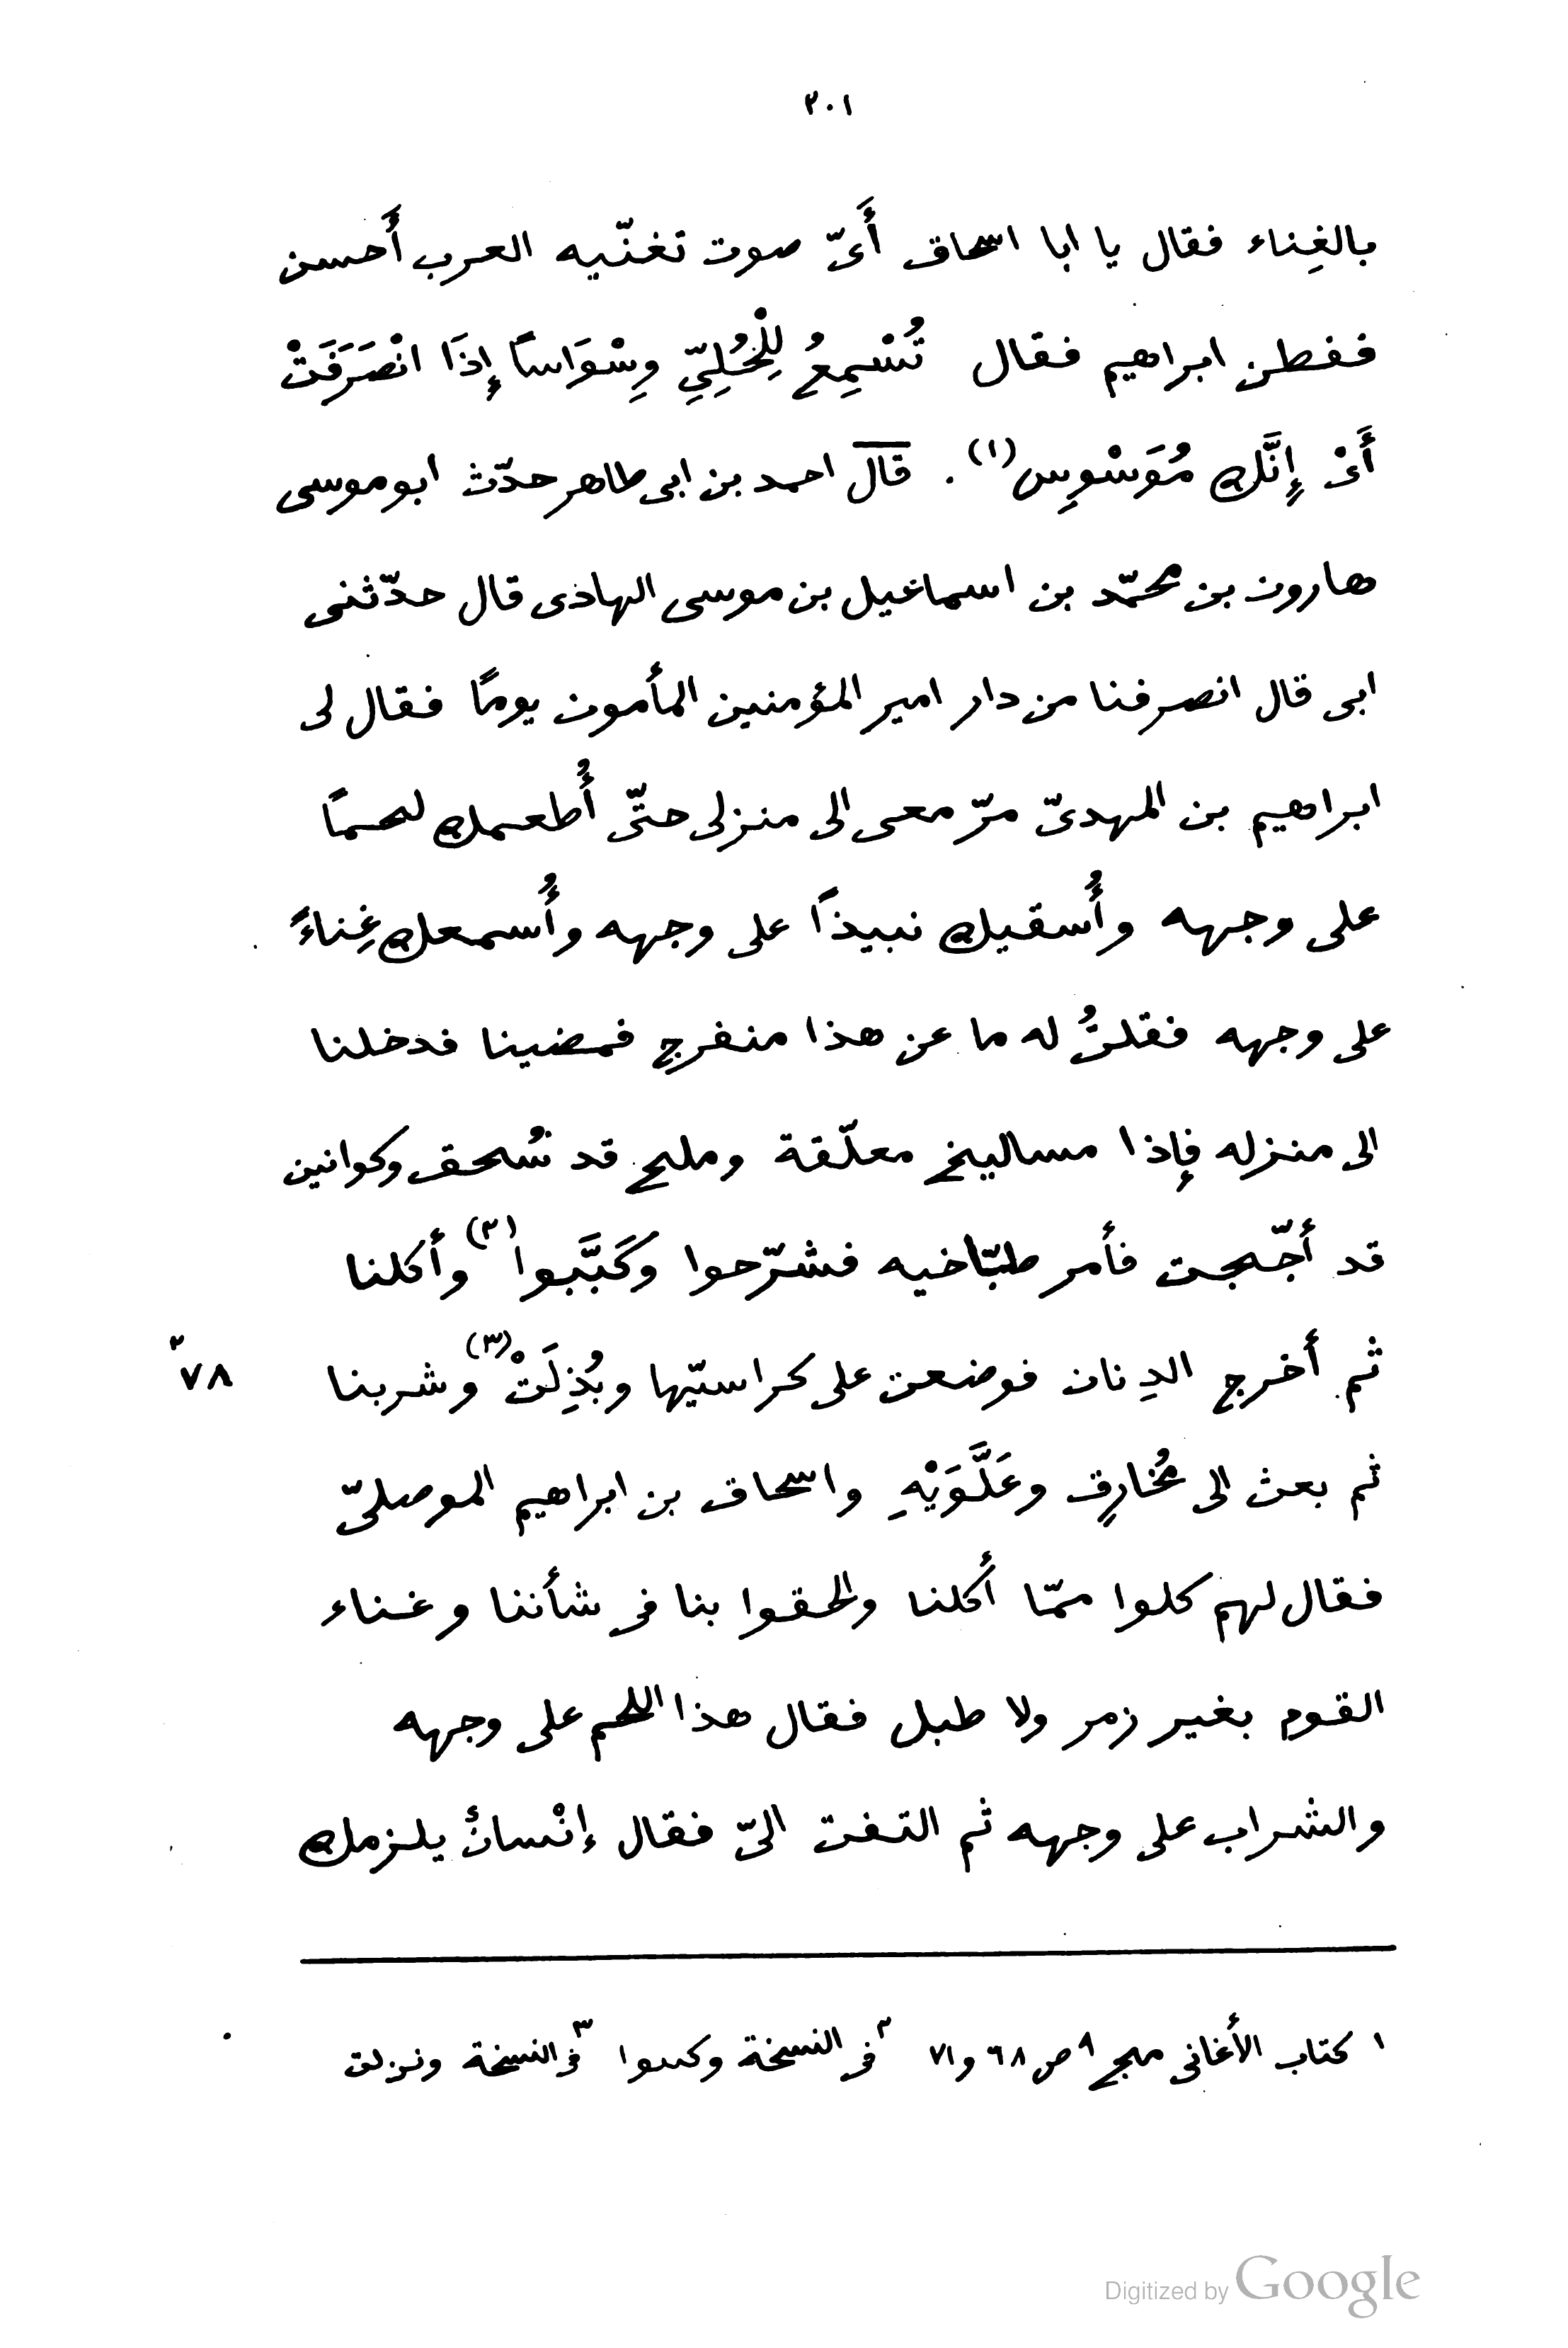 ٢٠١
بالغِناء فقال يا ابا اسحاق أَىّ صوت تغنّيه العرب أَحسن
ففطن ابراهيم فقال تُسْمِعُ لِلْحُلِيِّ وِسْوَاسًا إِذَا انْصَرَفَتْ
أَىْ إِنَّك مُوَسْوِس (١) . قال احمد بن ابى طاهر حدّث ابو موسى
هارون بن محمّد بن اسماعيل بن موسى الهادى قال حدّثنى
ابى قال انصرفنا من دار امير المؤمنين المأمون يومًا فقال لى
ابراهيم بن المهدىّ مرّ معى الى منزلى حتّى أُطعمك لحمًا
على وجهه وأُسقيك نبيذًا على وجهه وأُسمعك غِناءً
على وجهه فقلتُ له ما عن هذا منفرج فمضينا فدخلنا
الى منزله فإذا مساليخ معلّقة وملح قد سُحق وكوانين
قد أجّجت فأمر طبّاخيه فشرّحوا وكَبَّبوا (٢) وأكلنا
ثم أخرج الدِنان فوضعن على كراسيّها وبُذِلَتْ (٣) وشربنا
٧٨ ٢
ثم بعث الى مُخارِق وعَلَّوَيْهِ واسحاق بن ابراهيم الموصلىّ
فقال لهم كلوا ممّا أكلنا والحقوا بنا فى شأننا وغناء
القوم بغير زمر ولا طبل فقال هذا اللحم على وجهه
والشراب على وجهه ثم التفت الىّ فقال إنْسانٌ يلزمك
١ كتاب الأغانى مج ٩ ص ٦٨ و٧١ ٢ فى النسخة وكسوا ٣ فى النسخة ونزلت
Digitized by Google